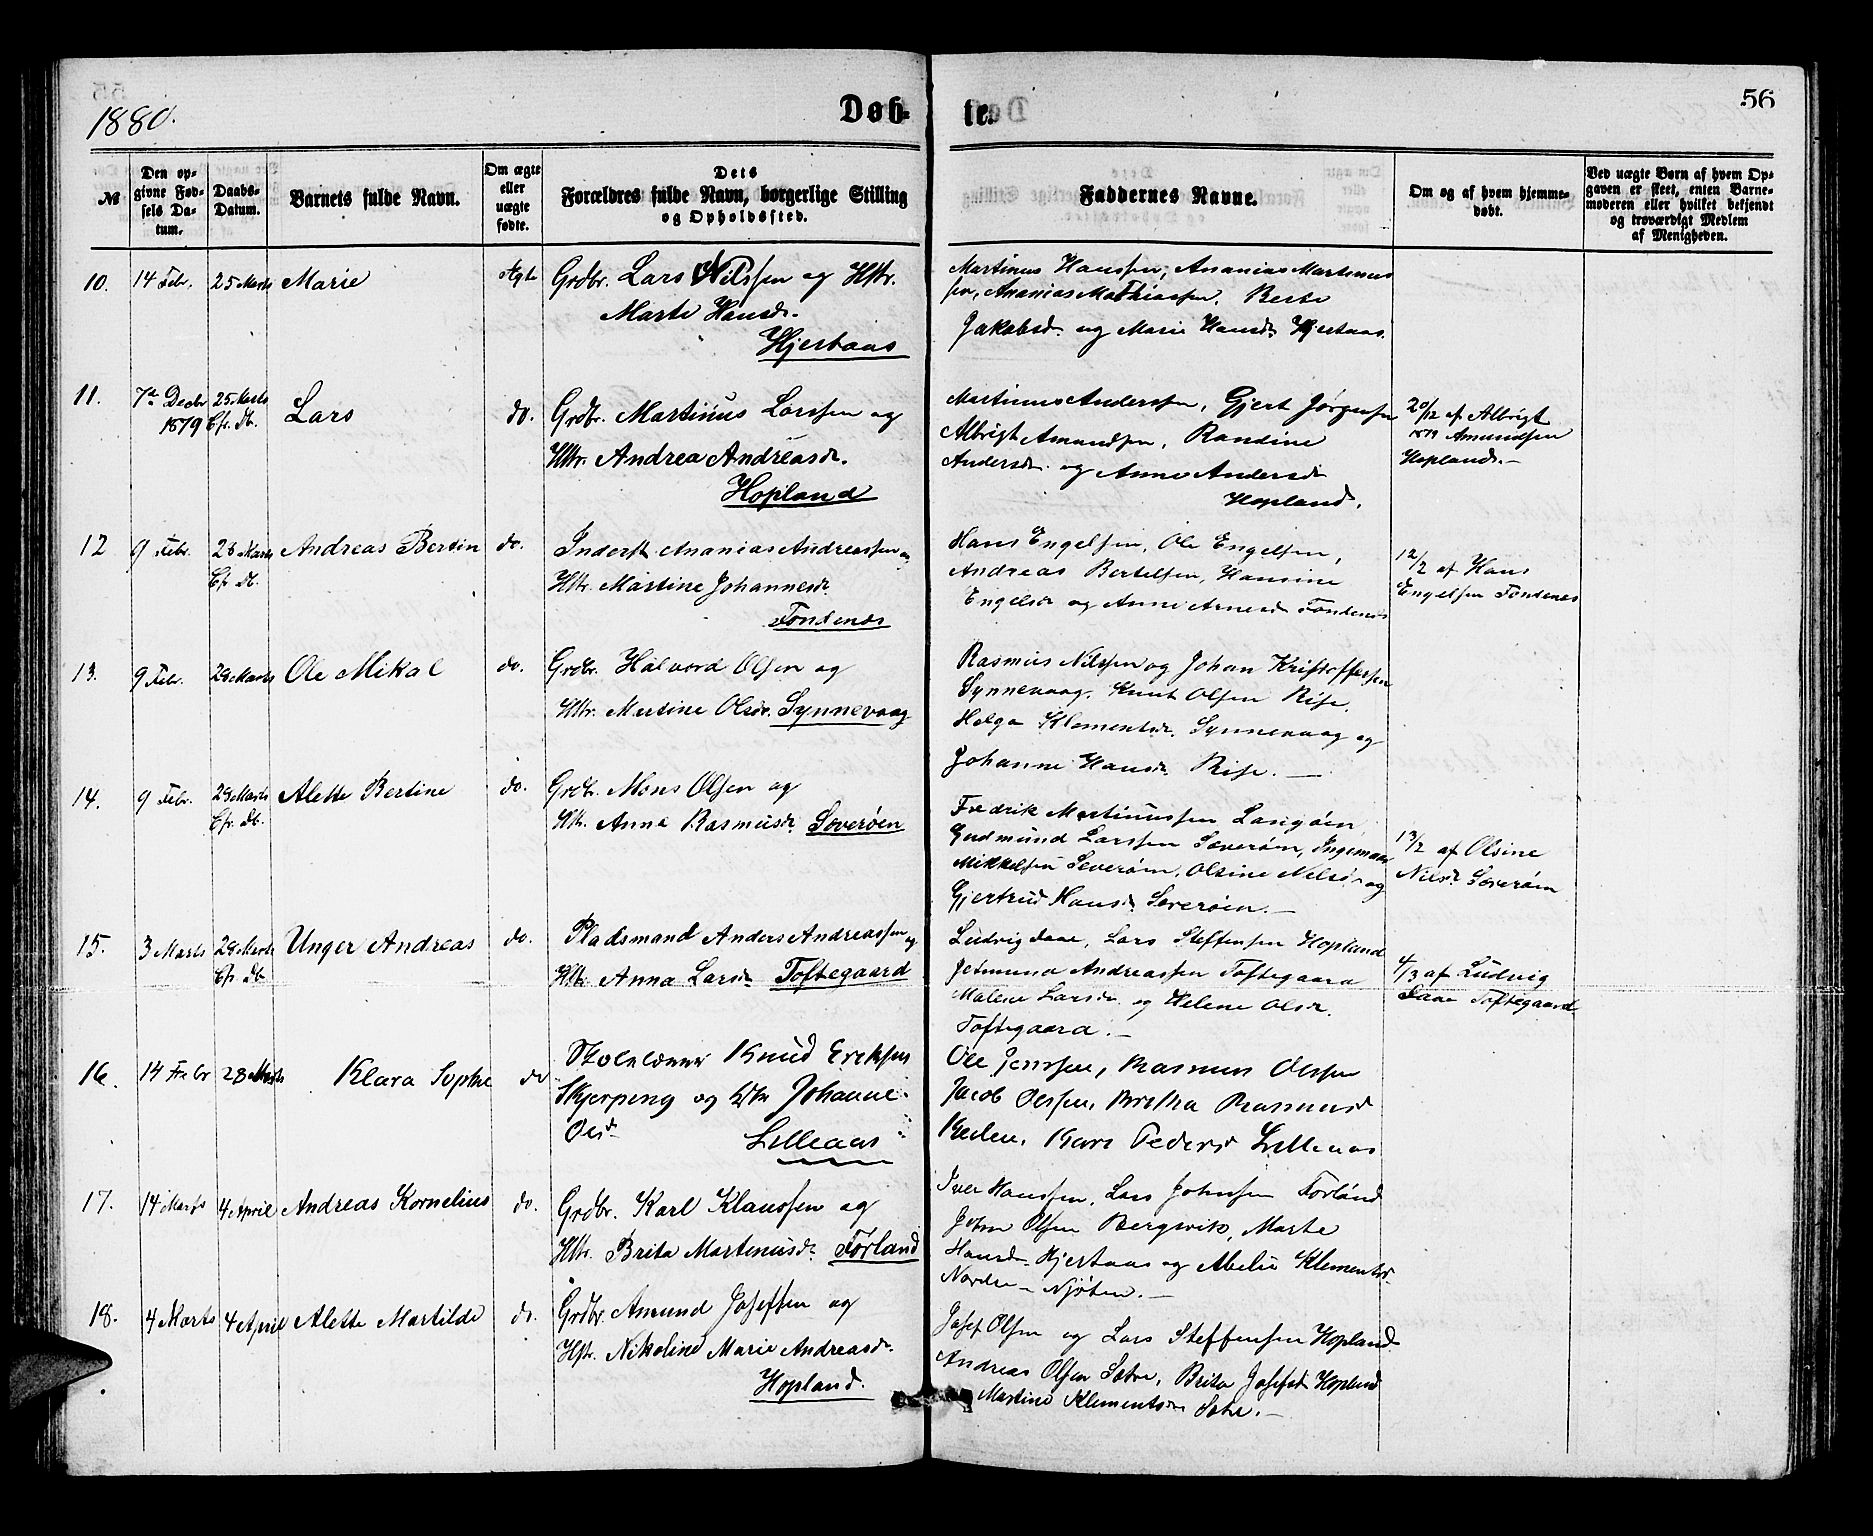 1880.
Døb-
te.
56
№
Den op-
givne Fød-
sels Da-
tum.
Daabs-
Datum.
Barnets fulde Navn.
Om ægte
eller
uægte
fødte.
Dets
Forældres fulde Navn, borgerlige Stilling
og Opholdssted.
Faddernes Navne.
Om og af hvem hjemme-
døbt.
Ved uægte Børn af hvem Op-
gaven er skeet, enten Barne-
moderen eller hvilket bekjendt
og troværdigt Medlem
af Menigheden.
10. 14 Febr. 25 Marts Marie Ægte Grdbr. Lars Nilssen og Hstr.
Marte Hansdr.
Hjertaas
Martinus Hanssen, Ananias Martinus
sen, Ananias Mathiassen, Berte
Jakobsdr. og Marie Hansdr. Hjertaas.
11. 7de Decbr 25 Marts Lars do. Grdbr. Martinus Larssen og
1879 Cfr. Db.
Hstr. Andrea Andreasdr.
Hopland
Martinus Anderssen, Gjert Jørgensen
Albrigt Amundsen, Randine
Andersdr. og Anne Andersdr
Hopland.
20/12 af Albrigt
1879 Amundsen
Hopland.-
12 9 Febr. 28 Marts Andreas Bertin do. Inderst Ananias Andreassen og
Cfr. Db.
Hstr. Martine Johannesdr.
Tondenes
Hans Engelsen, Ole Engelsen,
Andreas Bertelsen, Hansine
Engelsdr og Anne Arnesdr Tondenes
12/2 af Hans
Engelsen Tondenes
13. 9 Febr. 29 Marts Ole Mikal do. Grdbr. Halvord Olsen og
Hstr. Martine Olsdr. Synnevaag
Rasmus Nilssen og Johan Kristoffersen
Synnevaag. Knut Olsen Rise.
Helga Klementsdr. Synnevaag og
Johanne Hansdr. Rise. —
14. 9 Febr. 29 Marts Alette Bertine do. Grdbr. Mons Olsen og
Cfr. Db.
Hstr. Anne Rasmusdr. Soverøen
Fredrik Martinussen Langøen
Gudmund Larssen Soverøen, Ingemann
Mikkelsen Soverøen, Olsine Nilsdr og
Gjertrud Hansdr. Soverøen. —
13/2 af Olsine
Nilsdr. Soverøen
15. 3 Marts 29 Marts Unger Andreas do. Pladsmand Anders Andreassen og
Cfr. Db.
Hstr. Anna Larsdr. Toftegaard
Ludvig Daae, Lars Steffensen Hopland
Jetmund Andreassen Toftegaard
Malene Larsdr. og Helene Olsdr.
Toftegaard. —
4/3 af Ludvig
Daae Toftegaard
16. 14 Febr 28 Marts Klara Sophie do Skolelærer Knud Eriksen
Skjerping og Hstr Johanne
Olsdr
Lilleaas
Ole Jenssen, Rasmus Olssen
Jacob Olssen, Rasmusd
Kari Pedersd Lilleaas
17. 14 Marts 4 April Andreas Kornelius do. Grdbr. Karl Klaussen og
Hstr. Brita Martinusdr. Førland
Iver Hanssen, Lars Johnsen Førland
John Olsen Bergsvik, Marte
Hansdr. Hjertaas og Abelie Klementsdr.
Nordre - Njøten. —
18. 4 Marts 4 April Alette Martilde do. Grdbr. Amund Josefsen og
Hstr. Nikoline Marie Andreasdr.
Hopland.
Josef Olsen og Lars Steffensen Hopland
Andreas Olsen Sætre, Brita Josefsdr Hopland
Martine Klementsdr. Sætre. —